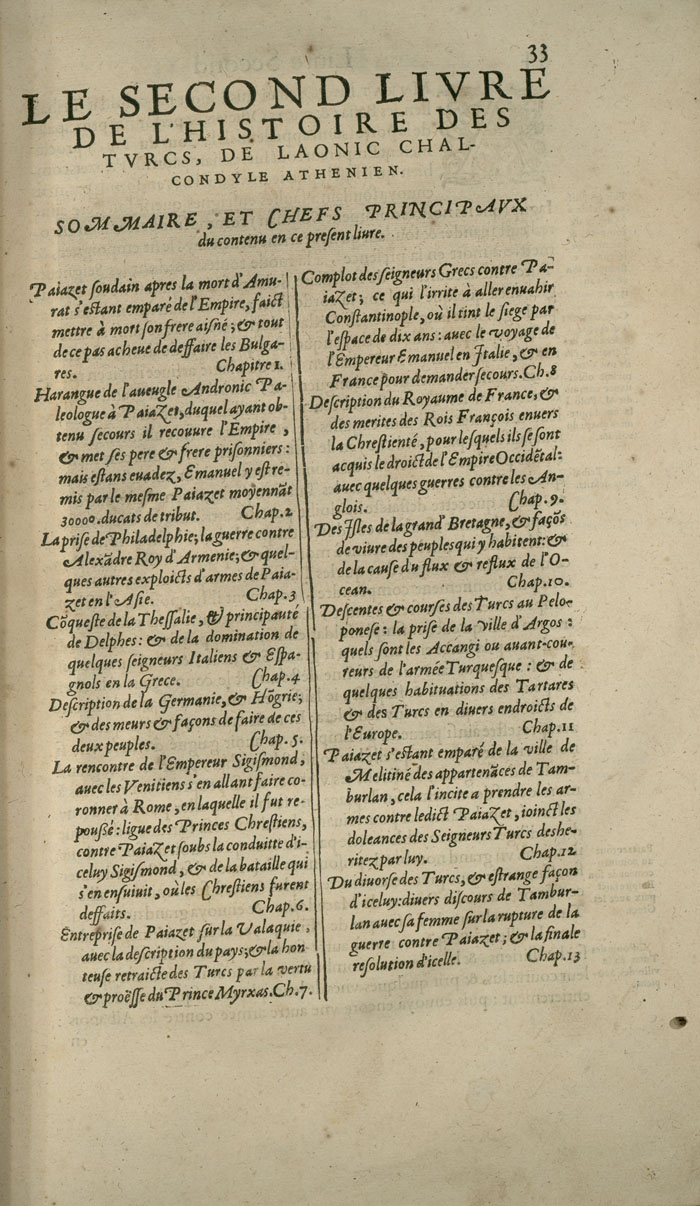 33
LE SECOND LIVRE
DE L'HISTOIRE DES
TVRCS, DE LAONIC CHAL-
CONDYLE ATHENIEN.
SOMMAIRE, ET CHEFS PRINCIPAVX
du contenu en ce preſent liure.
Paiazet ſoudain apres la mort d'Amu-
rat s'eſtant emparé de l'Empire, faict
mettre à mort ſon frere aiſné; & tout
de ce pas acheue de deffaire les Bulga-
res. Chapitre 1.
Harangue de l'aueugle Andronic Pa-
leologue à Paiazet, duquel ayant ob-
tenu ſecours il recouure l'Empire,
& met ſes pere & frere priſonniers:
mais eſtans euadez, Emanuel y eſt re-
mis par le meſme Paiazet moyennāt
30000. ducats de tribut. Chap. 2
La priſe de Philadelphie; la guerre contre
Alexādre Roy d'Armenie; & quel-
ques autres exploicts d'armes de Paia-
zet en l'Aſie. Chap. 3
Cōqueſte de la Theſſalie, & principauté
de Delphes: & de la domination de
quelques ſeigneurs Italiens & Eſpa-
gnols en la Grece. Chap. 4
Deſcription de la Germanie, & Hōgrie;
& des meurs & façons de faire de ces
deux peuples. Chap. 5.
La rencontre de l'Empereur Sigiſmond,
auec les Venitiens s'en allant faire co-
ronner à Rome, en laquelle il fut re-
poußé: ligue des Princes Chreſtiens,
contre Paiazet ſoubs la conduitte d'i-
celuy Sigiſmond, & de la bataille qui
s'en enſuiuit, où les Chreſtiens furent
deffaits. Chap. 6.
Entrepriſe de Paiazet ſur la Valaquie,
auec la deſcription du pays; & la hon
teuſe retraicte des Turcs par la vertu
& proëſſe du Prince Myrxas. Ch. 7.
Complot des ſeigneurs Grecs contre Pa-
iazet; ce qui l'irrite à aller enuahir
Conſtantinople, où il tint le ſiege par
l'eſpace de dix ans: auec le voyage de
l'Empereur Emanuel en Italie, & en
France pour demander ſecours. Ch. 8
Deſcription du Royaume de France, &
des merites des Rois François enuers
la Chreſtienté, pour leſquels ils ſe ſont
acquis le droict de l'Empire Occidētal:
auec quelques guerres contre les An-
glois. Chap. 9.
Des Iſles de la grand' Bretagne, & façōs
de viure des peuples qui y habitent: &
de la cauſe du flux & reflux de l'O-
cean. Chap. 10.
Deſcentes & courſes des Turcs au Pelo-
poneſe: la priſe de la ville d'Argos:
quels ſont les Accangi ou auant-cou-
reurs de l'armée Turqueſque: & de
quelques habituations des Tartares
& des Turcs en diuers endroicts de
l'Europe. Chap. 11
Paiazet s'eſtant emparé de la ville de
Melitiné des appartenāces de Tam-
burlan, cela l'incite a prendre les ar-
mes contre ledict Paiazet, ioinct les
doleances des Seigneurs Turcs deshe-
ritez par luy. Chap. 12
Du diuorſe des Turcs, & eſtrange façon
d'iceluy: diuers diſcours de Tambur-
lan auec ſa femme ſur la rupture de la
guerre contre Paiazet; & la finale
reſolution d'icelle. Chap. 13